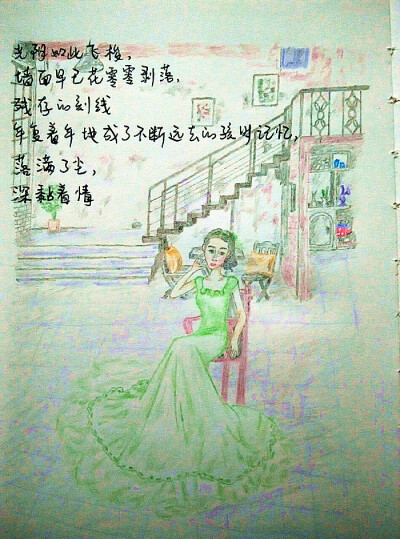 光阴如此飞梭,
墙面早已花零零剥落,
残存的刻线
年复着年地成了不断远去的孩时记忆,
落满了尘,
深黏着情